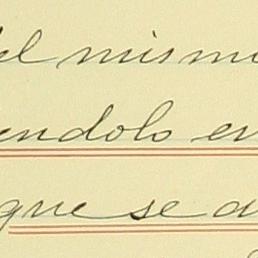 el mismo
endolo en
que se a